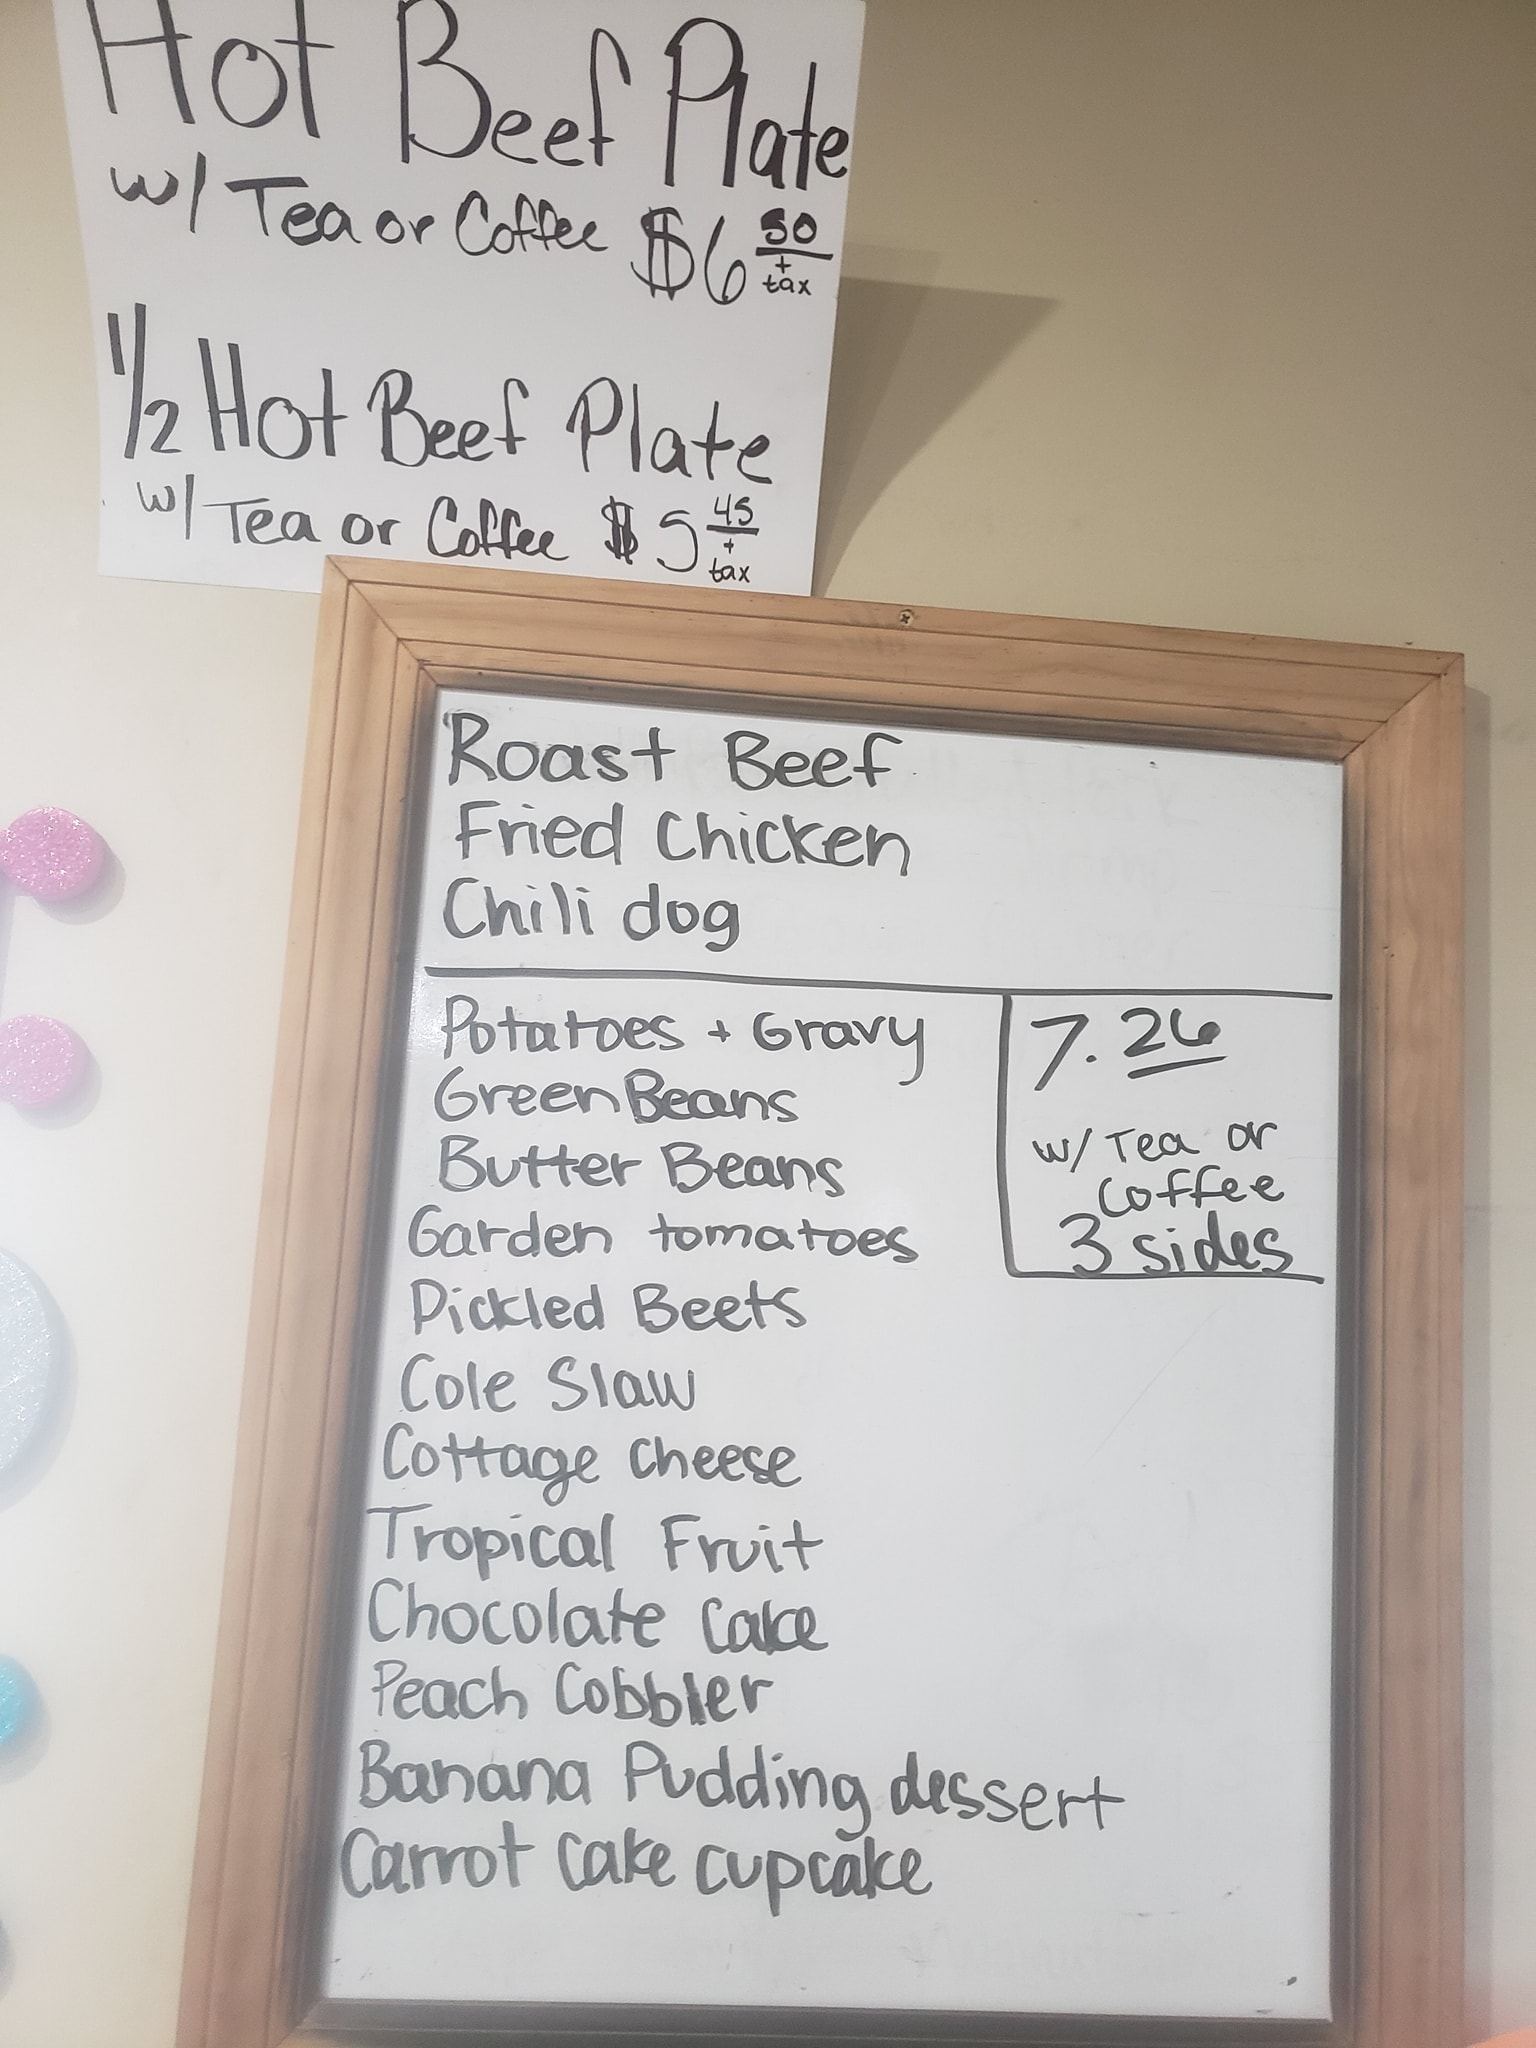 Hot Beef Plate
w/ Tea or Coffee $6 50 + tax
1/2 Hot Beef Plate
w/ Tea or Coffee $5 45 + tax
Roast Beef
Fried Chicken
Chili dog
Potatoes + Gravy
Green Beans
Butter Beans
Garden tomatoes
Pickled Beets
Cole Slaw
Cottage cheese
Tropical Fruit
Chocolate Cake
Peach Cobbler
Banana Pudding dessert
Carrot cake cupcake
7.26
w/ Tea or
Coffee
3 sides